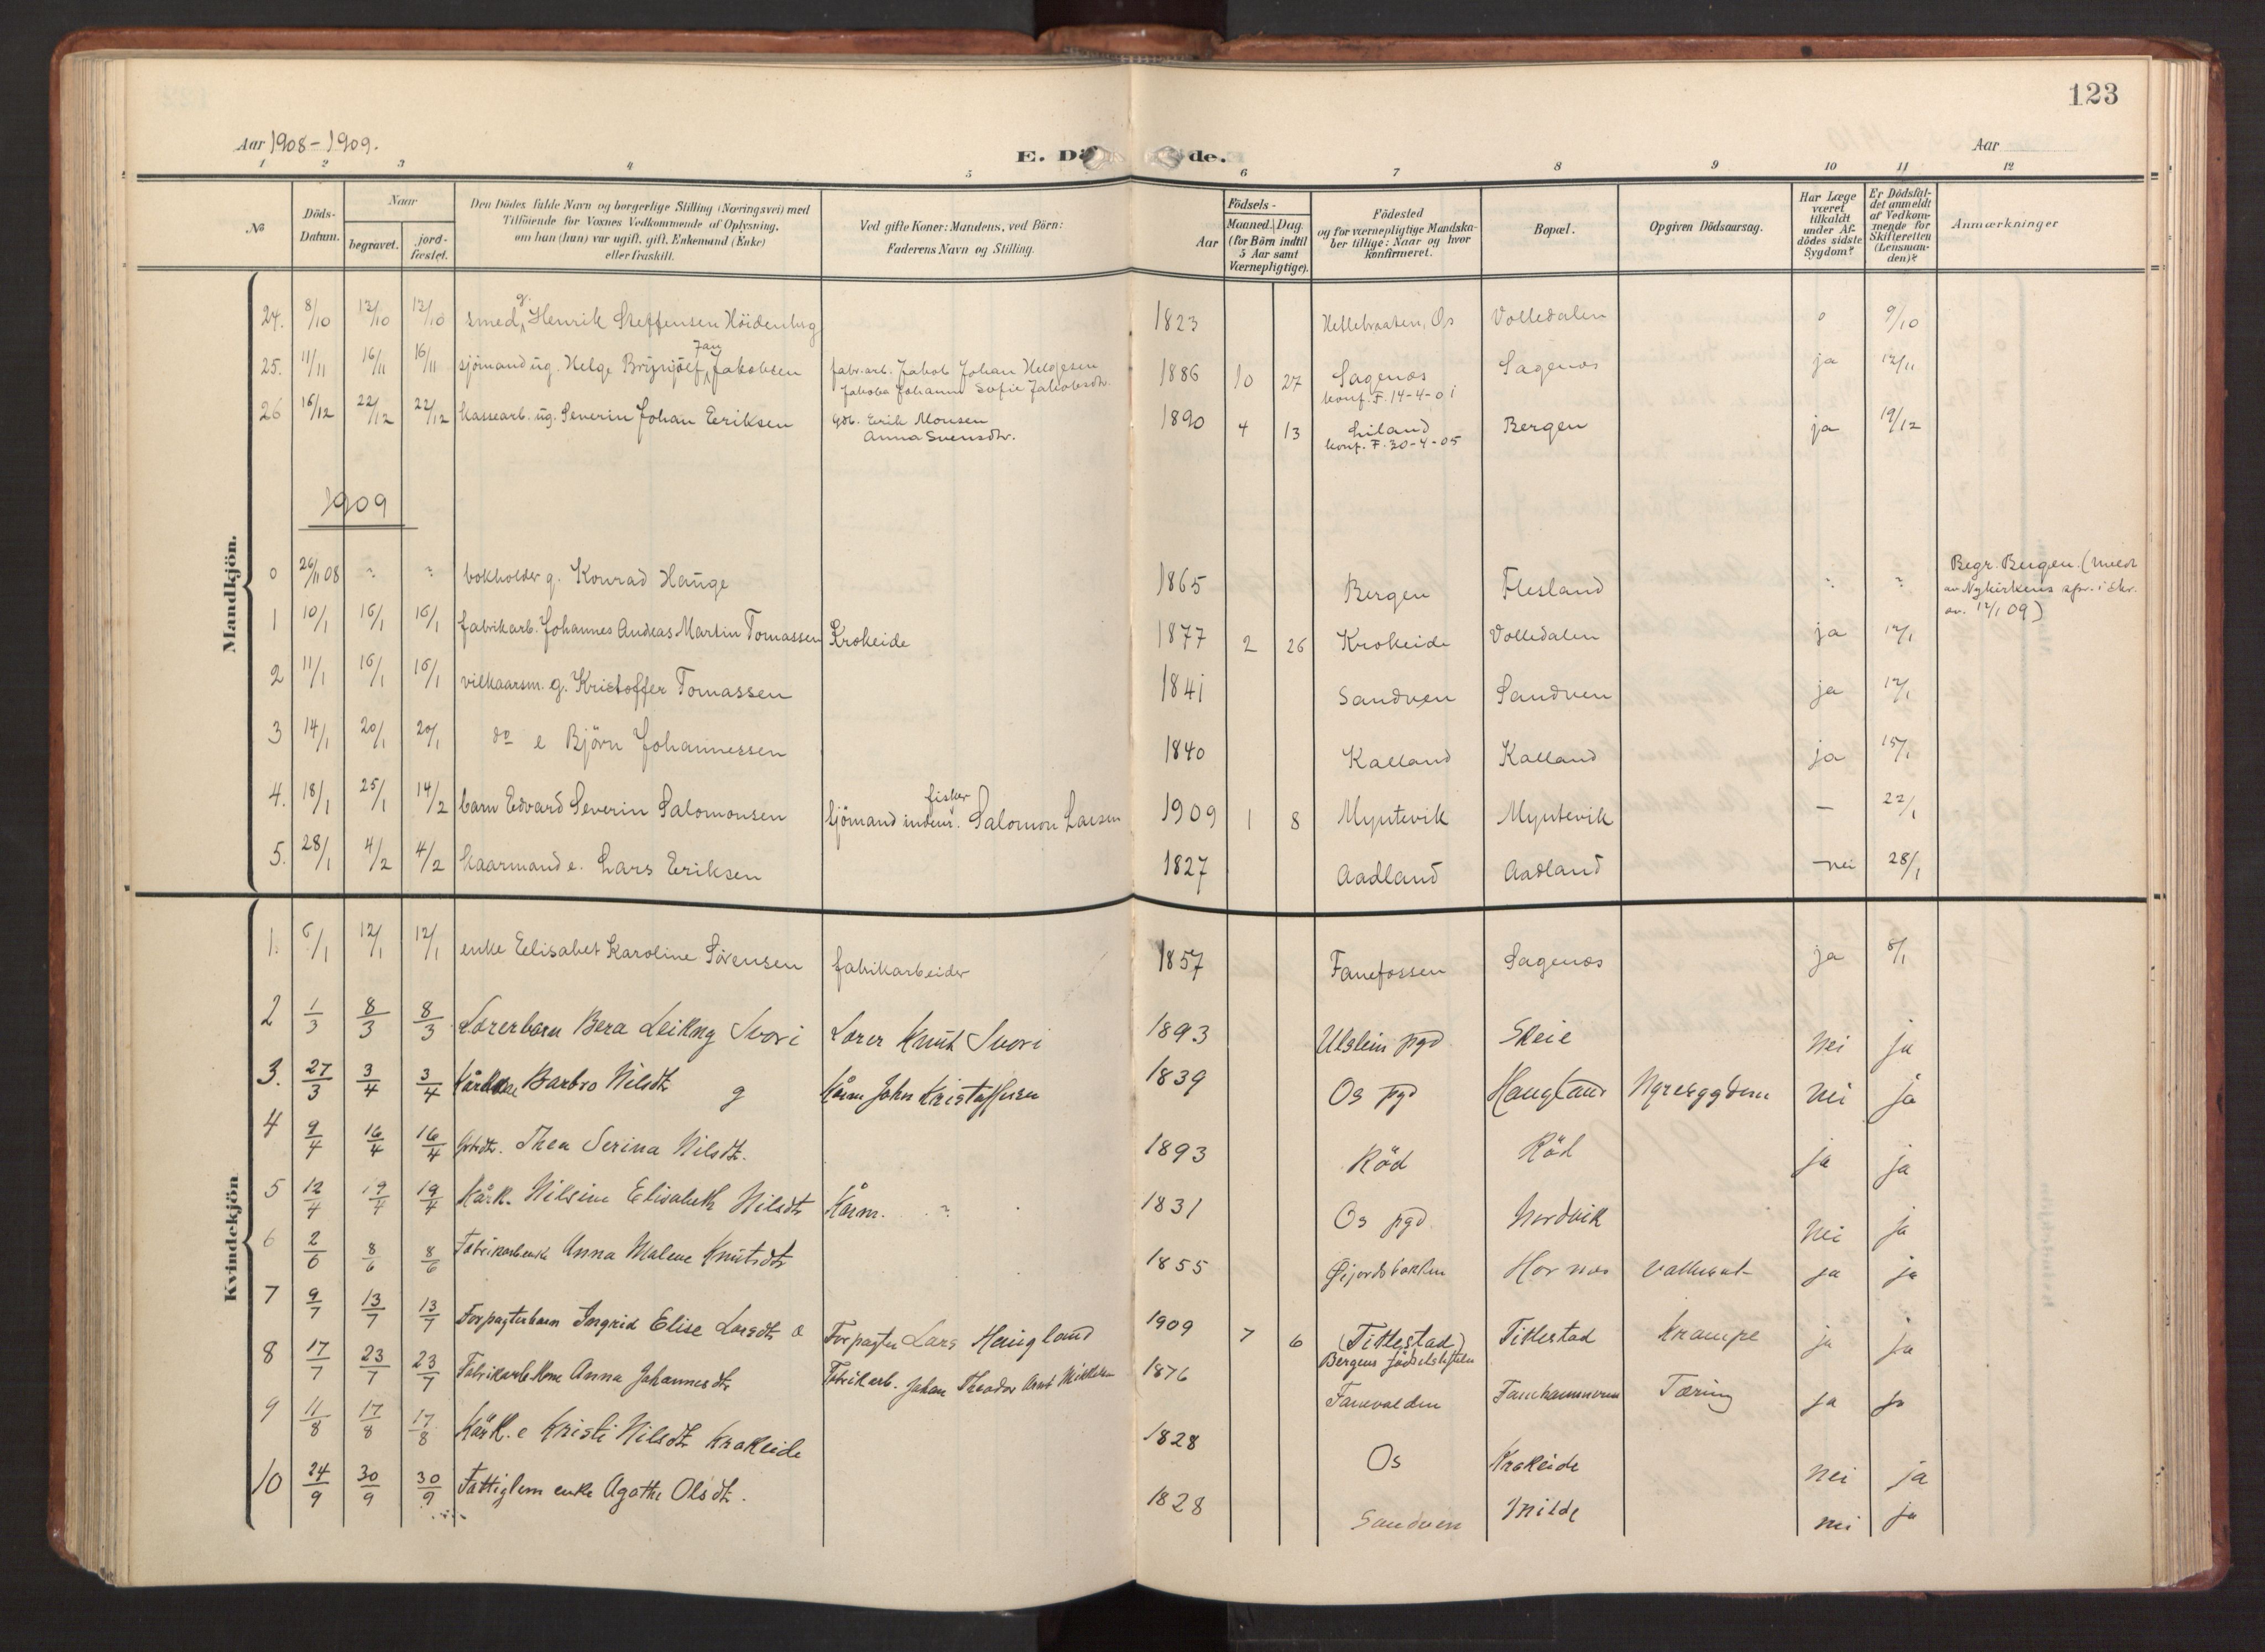 123
Aar 1908-1909.
E. Dö de.
Aar
1 2 3 4 5 6 7 8 9 10 11 12
№
Döds-Datum.
Naar
begravet.
jord-fæstet.
Den Dödes fulde Navn og borgerlige Stilling (Næringsvei) med
Tilföiende for Voxnes Vedkommende af Oplysning,
om han (hun) var ugift, gift, Enkemand (Enke)
eller fraskilt.
Ved gifte Koner: Mandens, ved Börn:
Faderens Navn og Stilling.
Födsels-
Aar
Maaned. Dag.
(for Börn indtil
5 Aar samt
Værnepligtige).
Födested
og for værnepligtige Mandska-
ber tillige: Naar og hvor
konfirmeret.
Bopæl.
Opgiven Dödsaarsag.
Har Læge
været
tilkaldt
under Af-
dödes sidste
Sygdom?
Er Dödsfal-
det anmeldt
af Vedkom-
mende for
Skifteretten
(Lensman-
den)?
Anmærkninger
Mandkjön.
24. 8/10 13/10 13/10 smed g. Henrik Steffensen Höidenlug 1823 Hellebraaten, Os Volledalen o 9/10
25. 11/11 16/11 16/11 sjömand ug. Helge Brynjolf Jan Jakobsen fabr.arb. Jakob Johan Helgesen 1886 10 27 Sagenos Sagenos ja 12/11
Jakoba Johanna Sofie Jakobsdtr. konf. F. 14-4-01
26 16/12 22/12 22/12 kassearb. ug. Severin Johan Eriksen gdb. Erik Monsen 1890 4 13 Liland Bergen ja 19/12
Anna Svensdtr. konf. F. 30-4-05
1909
0 26/11 08 ? ? bokholder g. Konrad Hauge 1865 Bergen Flesland ? ? Begr. Bergen. (meldt
av Nykirkens spr. i skr.
av. 12/1 09)
1 10/1 16/1 16/1 fabrikarb. Johannes Andreas Martin Tomassen Krokeide 1877 2 26 Krokeide Volledalen ja 12/1
2 11/1 16/1 16/1 vilkaarsm. g. Kristoffer Tomassen 1841 Sandven Sandven ja 12/1
3 14/1 20/1 20/1 do e Björn Johannessen 1840 Kalland Kalland ja 15/1
4. 18/1 25/1 14/2 barn Edvard Severin Salomonsen Sjömand indenr. fisker Salomon Larsen 1909 1 8 Myntevik Myntevik — 22/1
5. 28/1 4/2 4/2 kaarmand e. Lars Eriksen 1827 Aadland Aadland —nei 28/1
Kvindekjön
1. 6/1 12/1 12/1 enke Elisabet Karoline Sörensen fabrikarbeider 1857 Fanefossen Sagenos ja 8/1
2 1/3 8/3 8/3 Lærerbarn Bera Leikny Svori Lærer Knut Svori 1893 Ulstein pgd Skeie Nei ja
3. 27/3 3/4 3/4 Barbro Nilsdtr g Kårm John Kristoffersen 1839 Os pgd Haugland Nei ja
4 9/4 16/4 16/4 Thea Serina Nilsdtr. 1893 Röd Röd ja ja
5 12/4 19/4 19/4 Kårk. Nilsine Elisabeth Nilsdtr Kårm. ? 1831 Os pgd. Nordvik Nei ja
6 2/6 8/6 8/6 Fabrikarbenke Anna Malene Knutsdtr 1855 Øijordsbakken Hornæs ja ja
7 9/7 13/7 13/7 Forpagterbarn Ingrid Elise Larsdtr Forpagter Lars Haugland 1909 7 6 (Titlestad) Titlestad Krampe ja ja
Bergens födselsstiftelse
8 17/7 23/7 23/7 Fabrikarbkone Anna Johannesdtr Fabrikarb. Johan Theodor Mikkelsen 1876 Fanevalden Fanehammeren Tæring ja ja
9 11/8 17/8 17/8 Kårk. e Kristi Nilsdtr Krokeide 1828 Os Krokeide Nei ja
10 24/9 30/9 30/9 Fattiglem enke Agathe Olsdtr. 1828 Sandven Milde nei ja